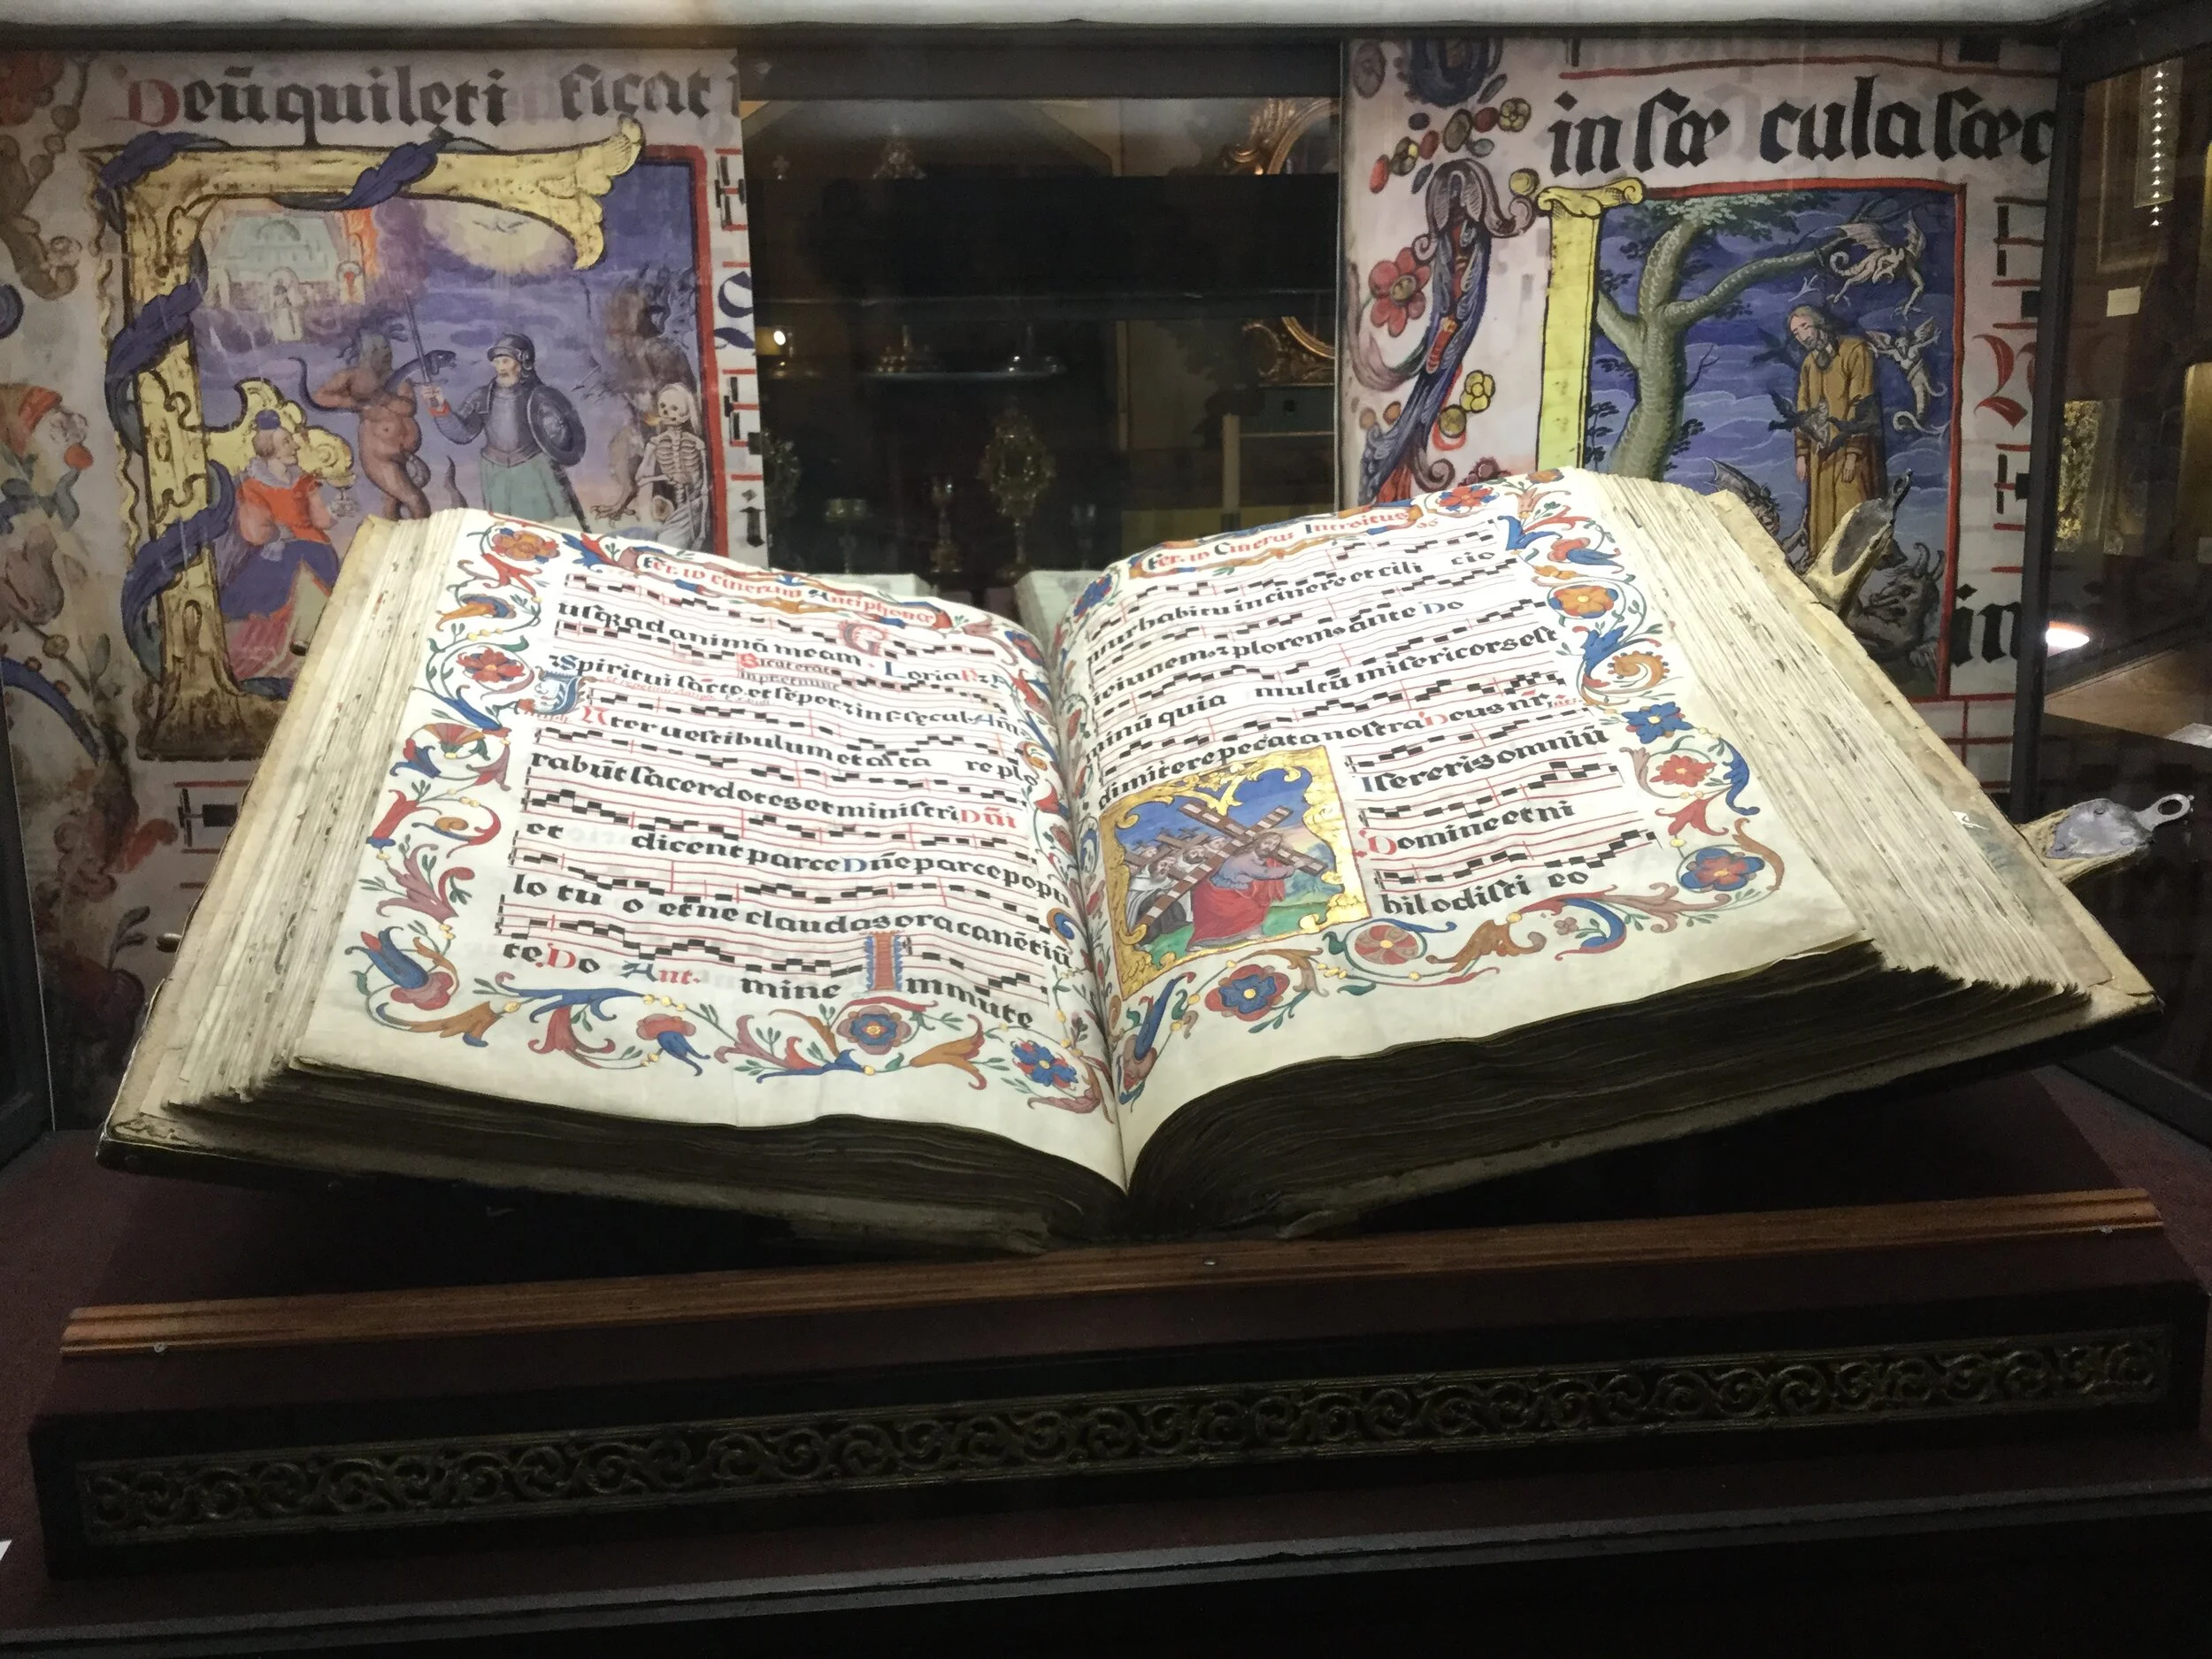 Deũ qui lęti ficat
in sœ cula sœc
in
Fer. iv Cinerum Antiphonæ
usq; ad animã meam. Gloria P. & F.
Sicut erat
in prĩ et nunc
& Spiritui sãcto. et sẽper & in sęcul. Amẽ.
Inter uestibulum et alta re plo
rabũt sacerdotes et ministri Dñi
et dicent parce Dñe parce popu
lo tu o et ne claudas ora canẽtiũ
te. Do Ant. mine Immute
Fer. iv Cinerũ Introitus 96
mur habitu in cinere et cili cio
ieiunemꝰ & ploremꝰ ãnte Do
minũ quia multũ misericors est
dimitere pecata nostra Deus nr̃.
Isereris omniũ
Domine et ni
hil odisti eo